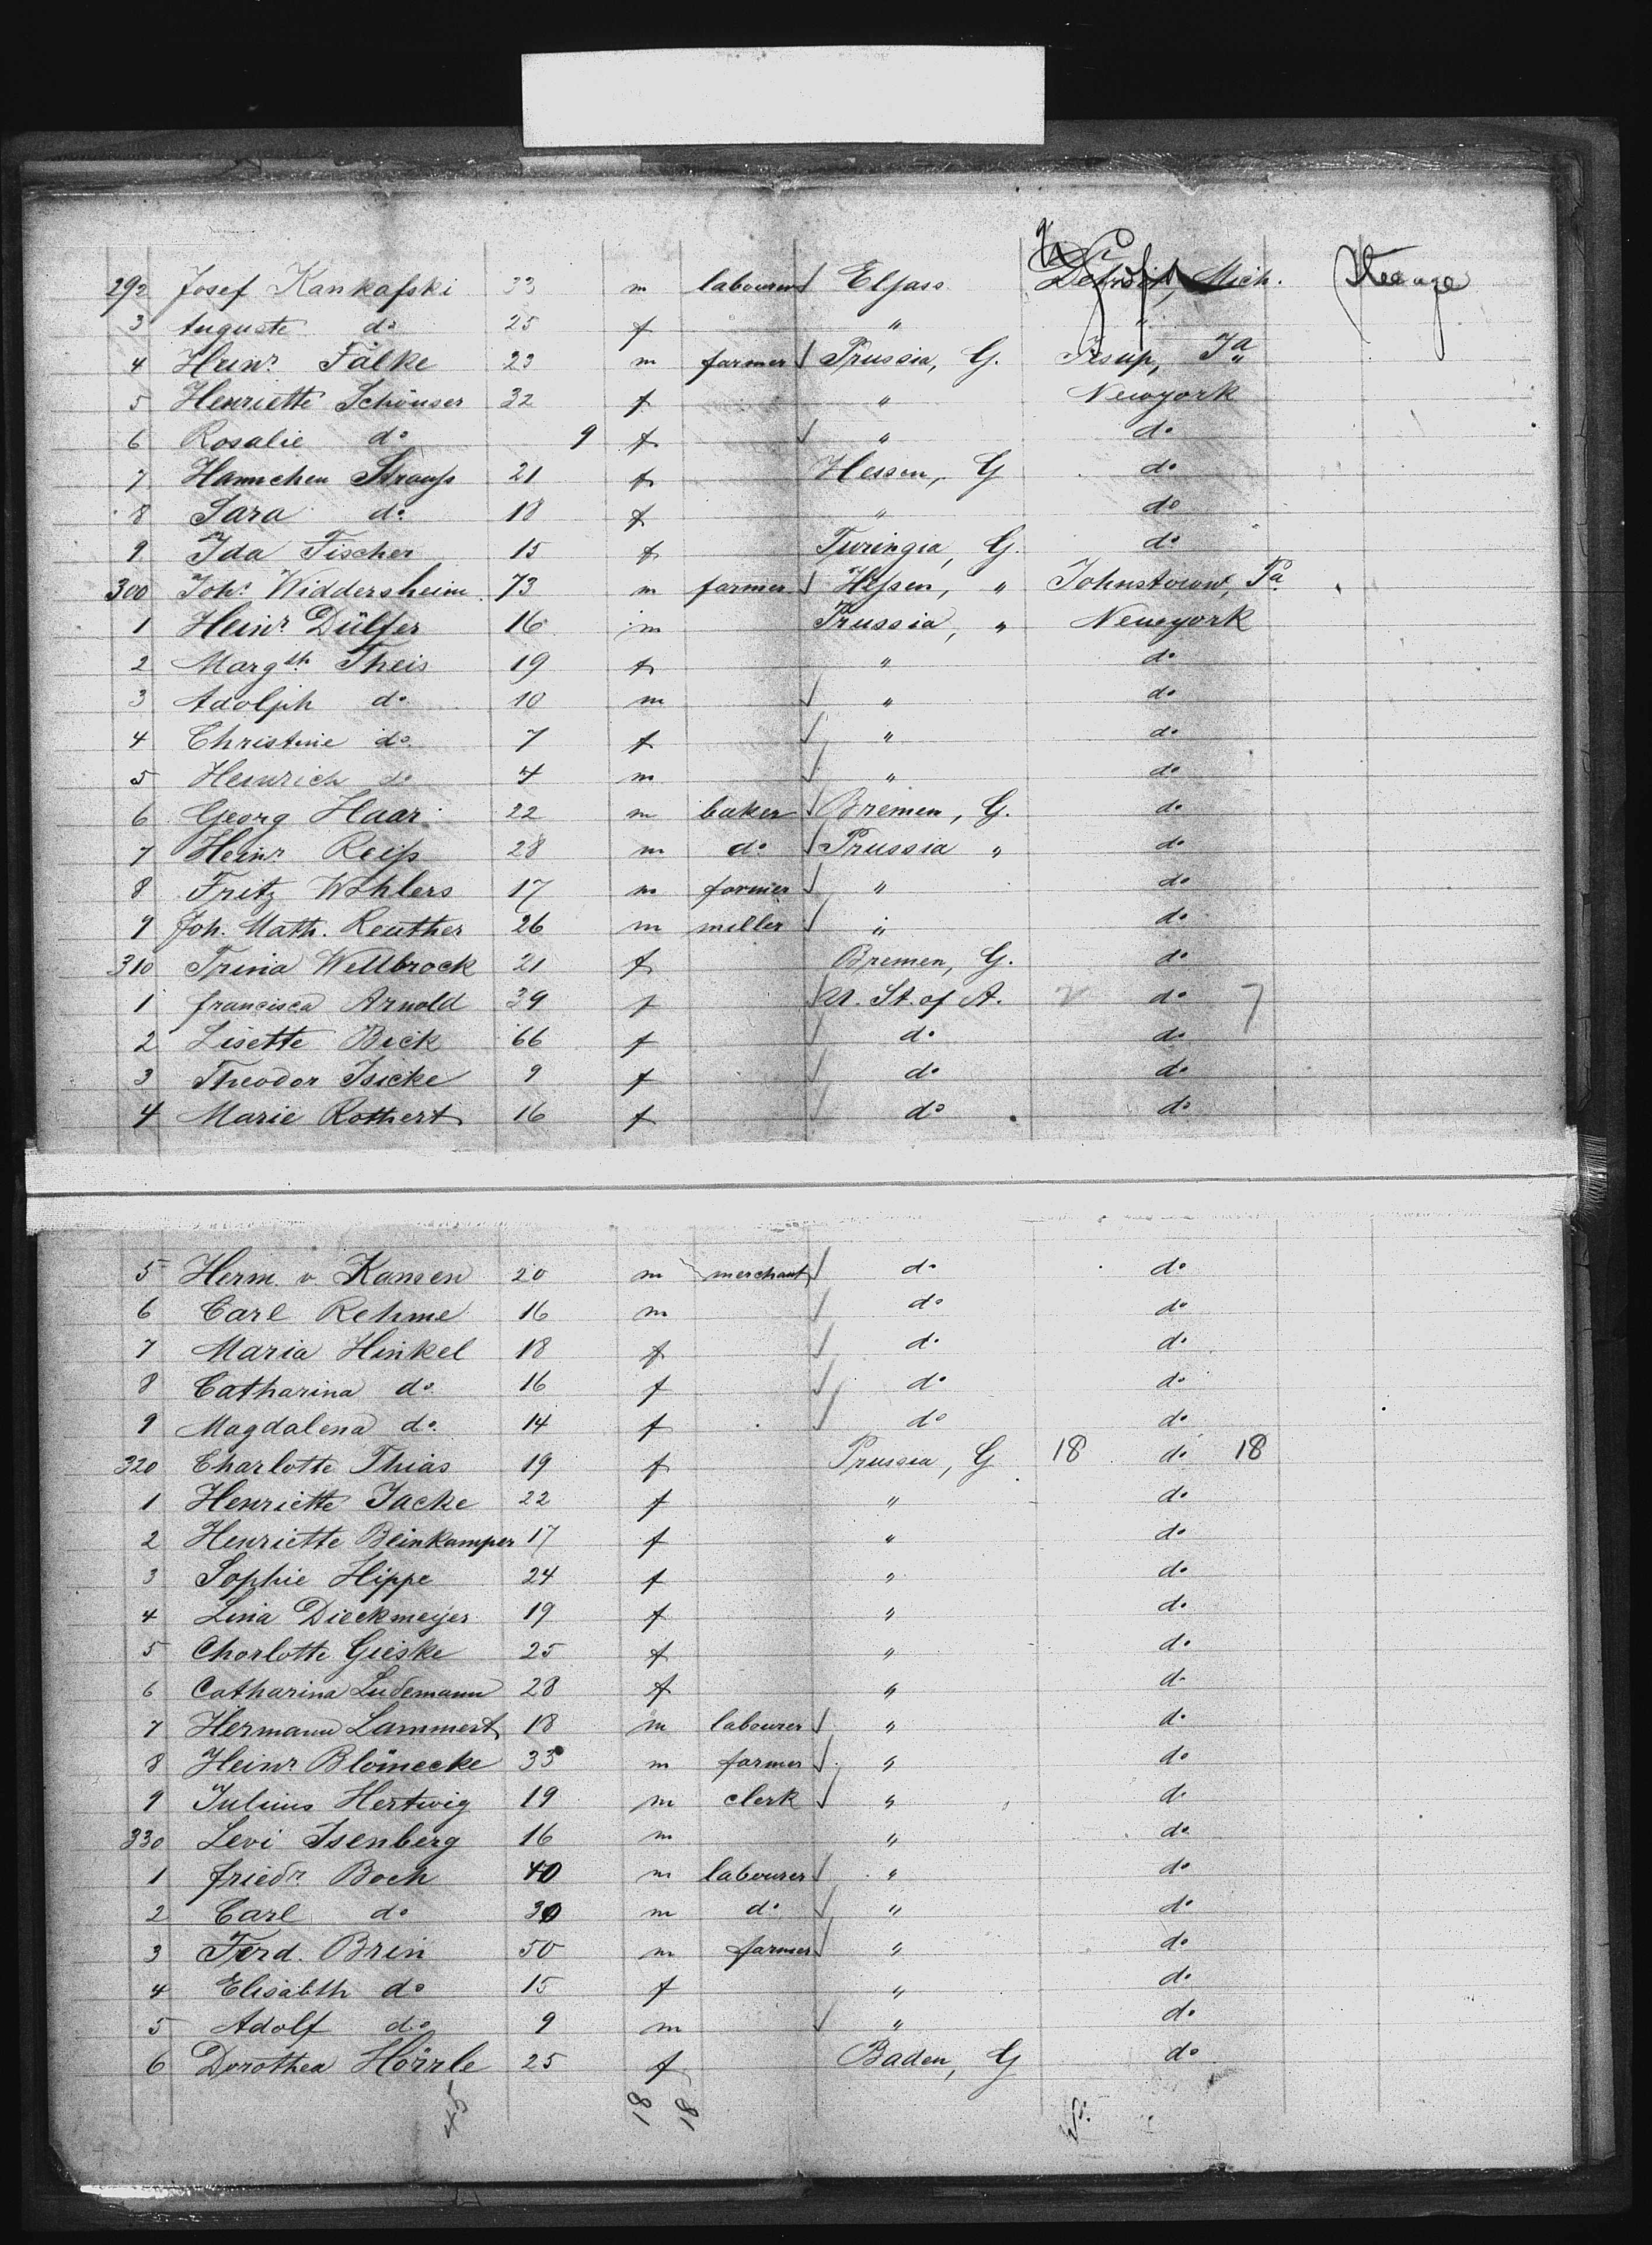 292 Josef Kankafski 33 m labourer Elsass Detroit, Mich. Steerage
3 Auguste do 25 f " "
4 Heinr. Fälke 23 m farmer Prussia, G. Jesup, Ia
5 Henriette Schönser 32 f " Newyork
6 Rosalie do 9 f " do
7 Hannchen Strauss 21 f Hessen, G do
8 Sara do 18 f " do
9 Ida Fischer 15 f Turingia, G. do
300 Joh. Widdersheim 73 m farmer Hessen, " Johnstown, Pa
1 Heinr. Dülfer 16 m Prussia, " Newyork
2 Margth Theis 19 f " do
3 Adolph do 10 m " do
4 Christine do 7 f " do
5 Heinrich do 4 m " do
6 Georg Haar 22 m baker Bremen, G. do
7 Heinr Reiss 28 m do Prussia " do
8 Fritz Wohlers 17 m farmer " do
9 Joh. Math. Reuther 26 m miller " do
310 Trina Wellbrock 21 f Bremen, G. do
1 Francisca Arnold 39 f U. St. of A. do 7
2 Lisette Bick 66 f do do
3 Theodor Isicke 9 f do do
4 Marie Rothert 16 f do do
5 Herm. v. Kamen 20 m merchant do do
6 Carl Rehme 16 m do do
7 Maria Hinkel 18 f do do
8 Catharina do 16 f do do
9 Magdalena do 14 f do do
320 Charlotte Thias 19 f Prussia, G 18 do 18
1 Henriette Jacke 22 f " do
2 Henriette Beinkamper 17 f " do
3 Sophie Hippe 24 f " do
4 Lina Dieckmeyer 19 f " do
5 Charlotte Gieske 25 f " do
6 Catharina Ludemann 28 f " do
7 Hermann Lammert 18 m labourer " do
8 Heinr Blömecke 33 m farmer " do
9 Julius Hertwig 19 m clerk " do
330 Levi Isenberg 16 m " do
1 Friedr. Boch 40 m labourer " do
2 Carl do 30 m do " do
3 Ferd. Brin 50 m farmer " do
4 Elisabth do 15 f " do
5 Adolf do 9 m " do
6 Dorothea Hörrle 25 f Baden, G do
45 18 18